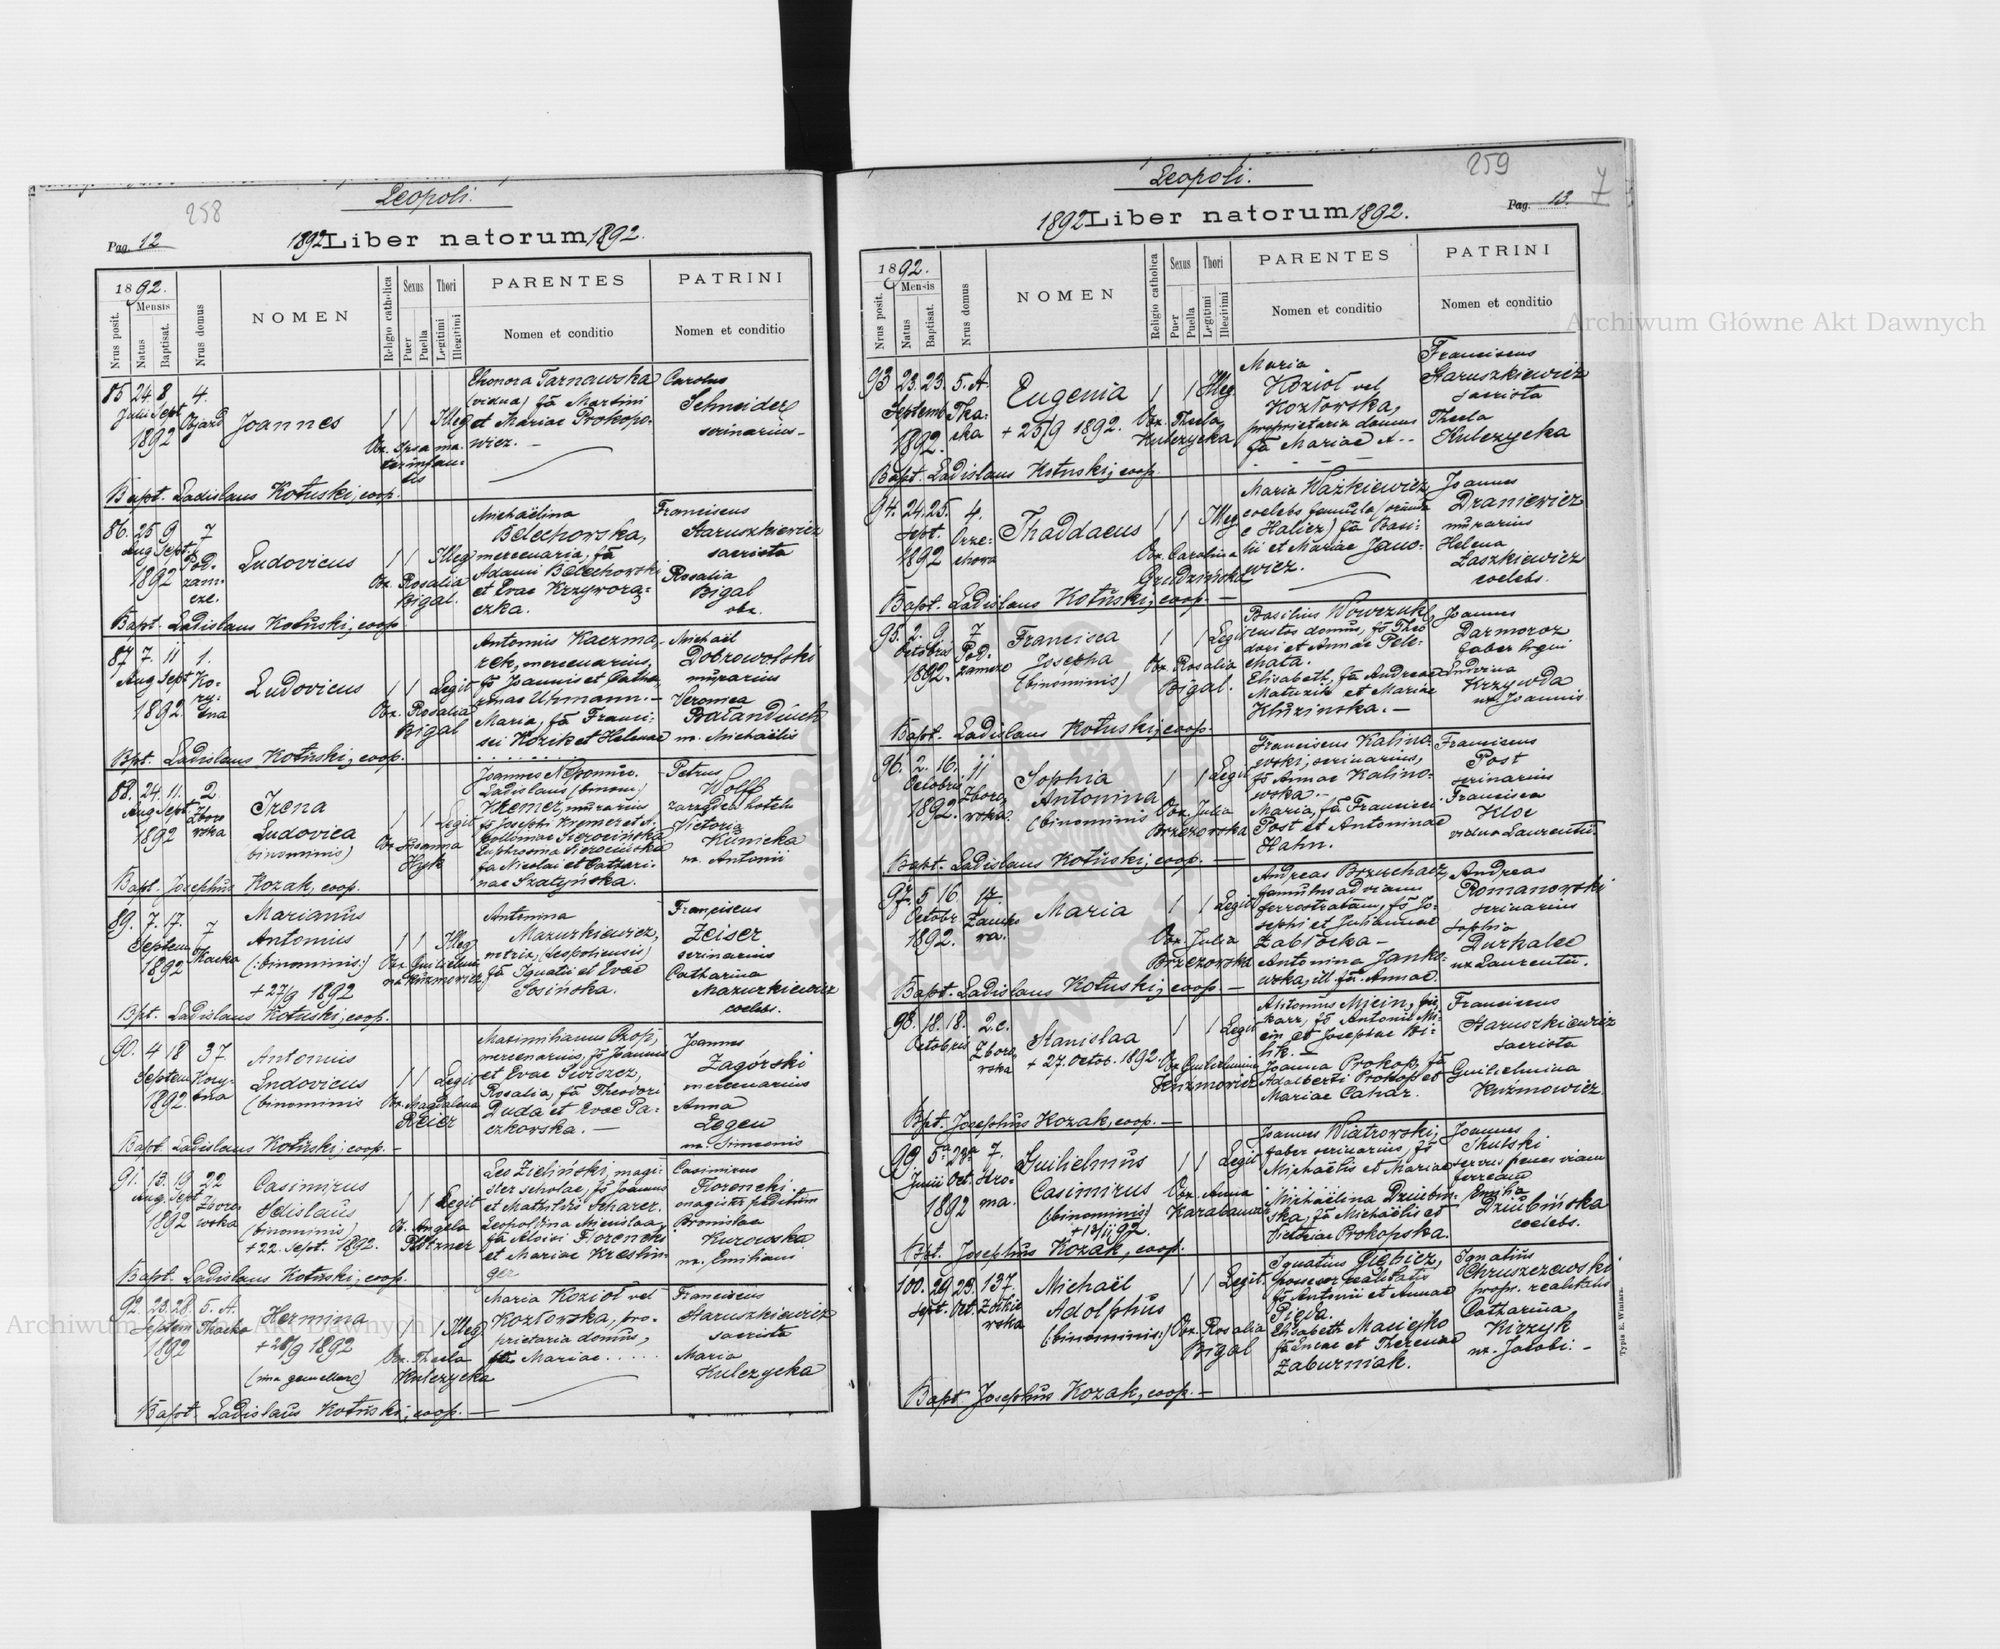 Leopoli.
258
Pag. 12
1892 Liber natorum 1892.
1892.
Mensis
Nrus posit.
Natus
Baptisat.
Nrus domus
NOMEN
Religio catholica
Sexus
Puer
Puella
Thori
Legitimi
Illegitimi
PARENTES
Nomen et conditio
PATRINI
Nomen et conditio
85 24 8 4.
Julii Sept Objazd
1892
Joannes
1 1 Illeg
Obx. ipsa ma-
ter infan-
tis
Eleonora Tarnawska
(vidua) fa Martini
et Mariae Prokopo-
wicz. -
Carolus
Schneider
serinarius -
Bapt. Ladislaus Kotuski, coop.
86. 25 9 7
Aug Sept. Pod-
1892 zam-
cze.
Ludovicus
1 1 Illeg
Obx. Rosalia
Bigal.
Michaëlina
Belechowska,
mercenaria, fa
Adami Belechowski
et Evae Krzyworą-
czka.
Franciscus
Staruszkiewicz
sacrista
Rosalia
Bigal
obx.
Bapt. Ladislaus Kotuski, coop.
87 7. 11 1.
Aug Sept Ko-
1892. ry-
tna
Ludovicus
1 1 Legit
Obx. Rosalia
Bigal
Antonius Kaczma-
rek, mercenarius,
fs Joannis et Catha-
rinae Uhmann. -
Maria, fa Franci-
sci Kozik et Helenae
Michaël
Dobrowolski
murarius
Veronica
Bałanduch
ux. Michaëlis
Bpt. Ladislaus Kotuski, coop.
88. 24. 11. 2.
Aug Sept Zboro
1892 wska
Irena
Ludovica
(binominis)
1 1 Legit
Obx Susanna
Hyk
Joannes Nepomuc.
Ladislaus (binom)
Kremer, murarius
fs Josephi Kremer et A-
polloniae Sierocińska
Euphrosina Sierocińska
fa Nicolai et Cathari-
nae Szatyńska.
Petrus
Wolff
zarządca hotelu
Victoria
Kunicka
ux. Antonii
Bapt. Josephus Kozak, coop.
89. 7. 17. 7
Septem Tkacka
1892
Marianus
Antonius
(:binominis:)
+ 27/9 1892
1 1 Illeg
Obx. Guilielmi-
na Kuzmowicz
Antonina
Mazurkiewicz,
netrix, (Leopoliensis)
fa Ignatii et Evae
Sosińska.
Franciscus
Zeiser
serinarius
Catharina
Mazurkiewicz
coelebs.
Bpt. Ladislaus Kotuski, coop.
90. 4 18 37.
Septem Kory-
1892. tna
Antonius
Ludovicus
(binominis
1 1 Legit
Obx. Magdalena
Reier
Maximilianus Czop,
mercenarius, fs Joannis
et Evae Sewiszcz,
Rosalia, fa Theodori
Duda et Evae Pa-
czkowska. -
Joannes
Zagórski
mercenarius
Anna
Legen
ux. Simeonis
Bapt. Ladislaus Kotuski, coop. -
91. 13. 19 22
Aug. Sept Zboro-
1892 wska
Casimirus
Edislaus
(binominis)
+ 22. Sept. 1892.
1 1 Legit
O. Angela
Platzner
Leo Zieliński, magi-
ster scholae, fs Joannis
et Mathildis Scharer.
Leopoldina Micislaa,
fa Aloisi Florencki
et Mariae Kreslin-
ger
Casimirus
Florencki
magister peditum
Bronislaa
Kurowska
ux. Emiliani
Bapt. Ladislaus Kotuski, coop.
92. 23. 28. 5. A.
Septem Tkacka
1892
Hermina
+ 28/9 1892
(una gemellarum)
1 1 Illeg
Obx. Thecla
Kulczycka
Maria Kozioł vel
Kozłowska, pro-
prietaria domus,
fa Mariae ......
Franciscus
Staruszkiewicz
sacrista
Maria
Kulczycka
Bapt. Ladislaus Kotuski, coop. -
Leopoli.
259
7
Pag. 13.
1892 Liber natorum 1892.
1892.
Mensis
Nrus posit.
Natus
Baptisat.
Nrus domus
NOMEN
Religio catholica
Sexus
Puer
Puella
Thori
Legitimi
Illegitimi
PARENTES
Nomen et conditio
PATRINI
Nomen et conditio
93 23. 23. 5. A.
Septemb Tka-
1892. cka
Eugenia
+ 25/9 1892.
1 1 Illeg.
Obx. Thecla
Kulczycka
Maria
Kozioł vel
Kozłowska,
proprietaria domus
fa Mariae A - -
Franciscus
Staruszkiewicz
sacrista
Thecla
Kulczycka
Bapt. Ladislaus Kotuski, coop.
94. 24. 25. 4.
Sept. Orze-
1892 chowa
Thaddaeus
1 1 Illeg
Obx. Carolina
Grudzińska
Maria Ważkiewicz,
coelebs famula (oriunda
e Halicz) fa Basi-
lii et Mariae Jano-
wicz.
Joannes
Draniewicz
murarius
Helena
Łaszkiewicz
coelebs.
Bapt. Ladislaus Kotuski, coop. -
95. 2. 9. 7
Octobris Pod-
1892. zamcze
Francisca
Josepha
(binominis)
1 1 Legit
Obx. Rosalia
Bigal.
Basilius Wowczuk,
custos domus, fs Theo
dori et Annae Pele-
chata.
Elisabeth, fa Andreae
Matuzik et Mariae
Kluzinska. -
Joannes
Darmoroz
faber ligni
Ludvina
Krzywda
ux. Joannis
Bapt. Ladislaus Kotuski, coop.
96. 2. 16. 11
Octobris Zboro-
1892. wska.
Sophia
Antonina
(binominis
1 1 Legit
Obx. Julia
Brzezowska
Franciscus Kalino-
wski, serinarius,
fs Annae Kalino-
wska. -
Maria, fa Francisci
Post et Antoninae
Hahn.
Franciscus
Post
serinarius
Francisca
Kloc
vidua Laurentii.
Bapt. Ladislaus Kotuski, coop. -
97. 5 16. 17.
Octobr Zamko
1892. wa.
Maria
1 1 Legit
Obx. Julia
Brzezowska
Andreas Brzuchacz
famulus ad viam
ferrostratam, fs Jo-
sephi et Julianae
Zabłocka -
Antonina Janko-
wska, ill. fa. Annae
Andreas
Romanowski
serinarius
Sophia
Durhalec
ux Laurentii.
Bapt. Ladislaus Kotuski, coop. -
98. 18. 18. 2.c.
Octobris Zboro
wska
Stanislaa
+ 27. Octob. 1892.
1 1 Legit
Obx Guilielmina
Kuzmowicz
Antonius Miein,
fs Antonii Mi-
ein et Josephae Bi-
lik. -
Joanna Prokop, fa
Adalberti Prokop et
Mariae Cahar.
Franciscus
Staruszkiewicz
sacrista
Guilielmina
Kuźmowicz.
Bpt. Josephus Kozak, coop. -
99 5ta 23a 7.
Junii Oct. Hro-
1892 ma.
Guilielmus
Casimirus
(binominis)
+ 13/11 92.
1 1 Legit
Obx. Anna
Karabanicz
Joannes Wiatrowski,
faber serinarius, fs
Michaëlis et Mariae
Michaëlina Dziubiń-
ska, fa Michaëlis et
Victoriae Prokopska.
Joannes
Skulski
servus penes viam
ferream
Emilia
Dziubińska
coelebs.
Bpt. Josephus Kozak, coop.
100. 29. 23. 137
Sept. Oct. Żołkie
wska
Michaël
Adolphus
(binominis:)
1 1 Legit.
Obx. Rosalia
Bigal
Ignatius Glebicz,
possesor realitatis
fs Antonii et Annae
Pięta.
Elisabeth Maciejko
fa Lucae et Theresiae
Zaburniak.
Ignatius
Chruszczewski
propr. realitatis
Catharina
Kirzyk
ux. Jacobi. -
Bapt Josephus Kozak, coop. -
Typis E. Winiarz.
Archiwum Główne Akt Dawnych
Archiwum Główne Akt Dawnych